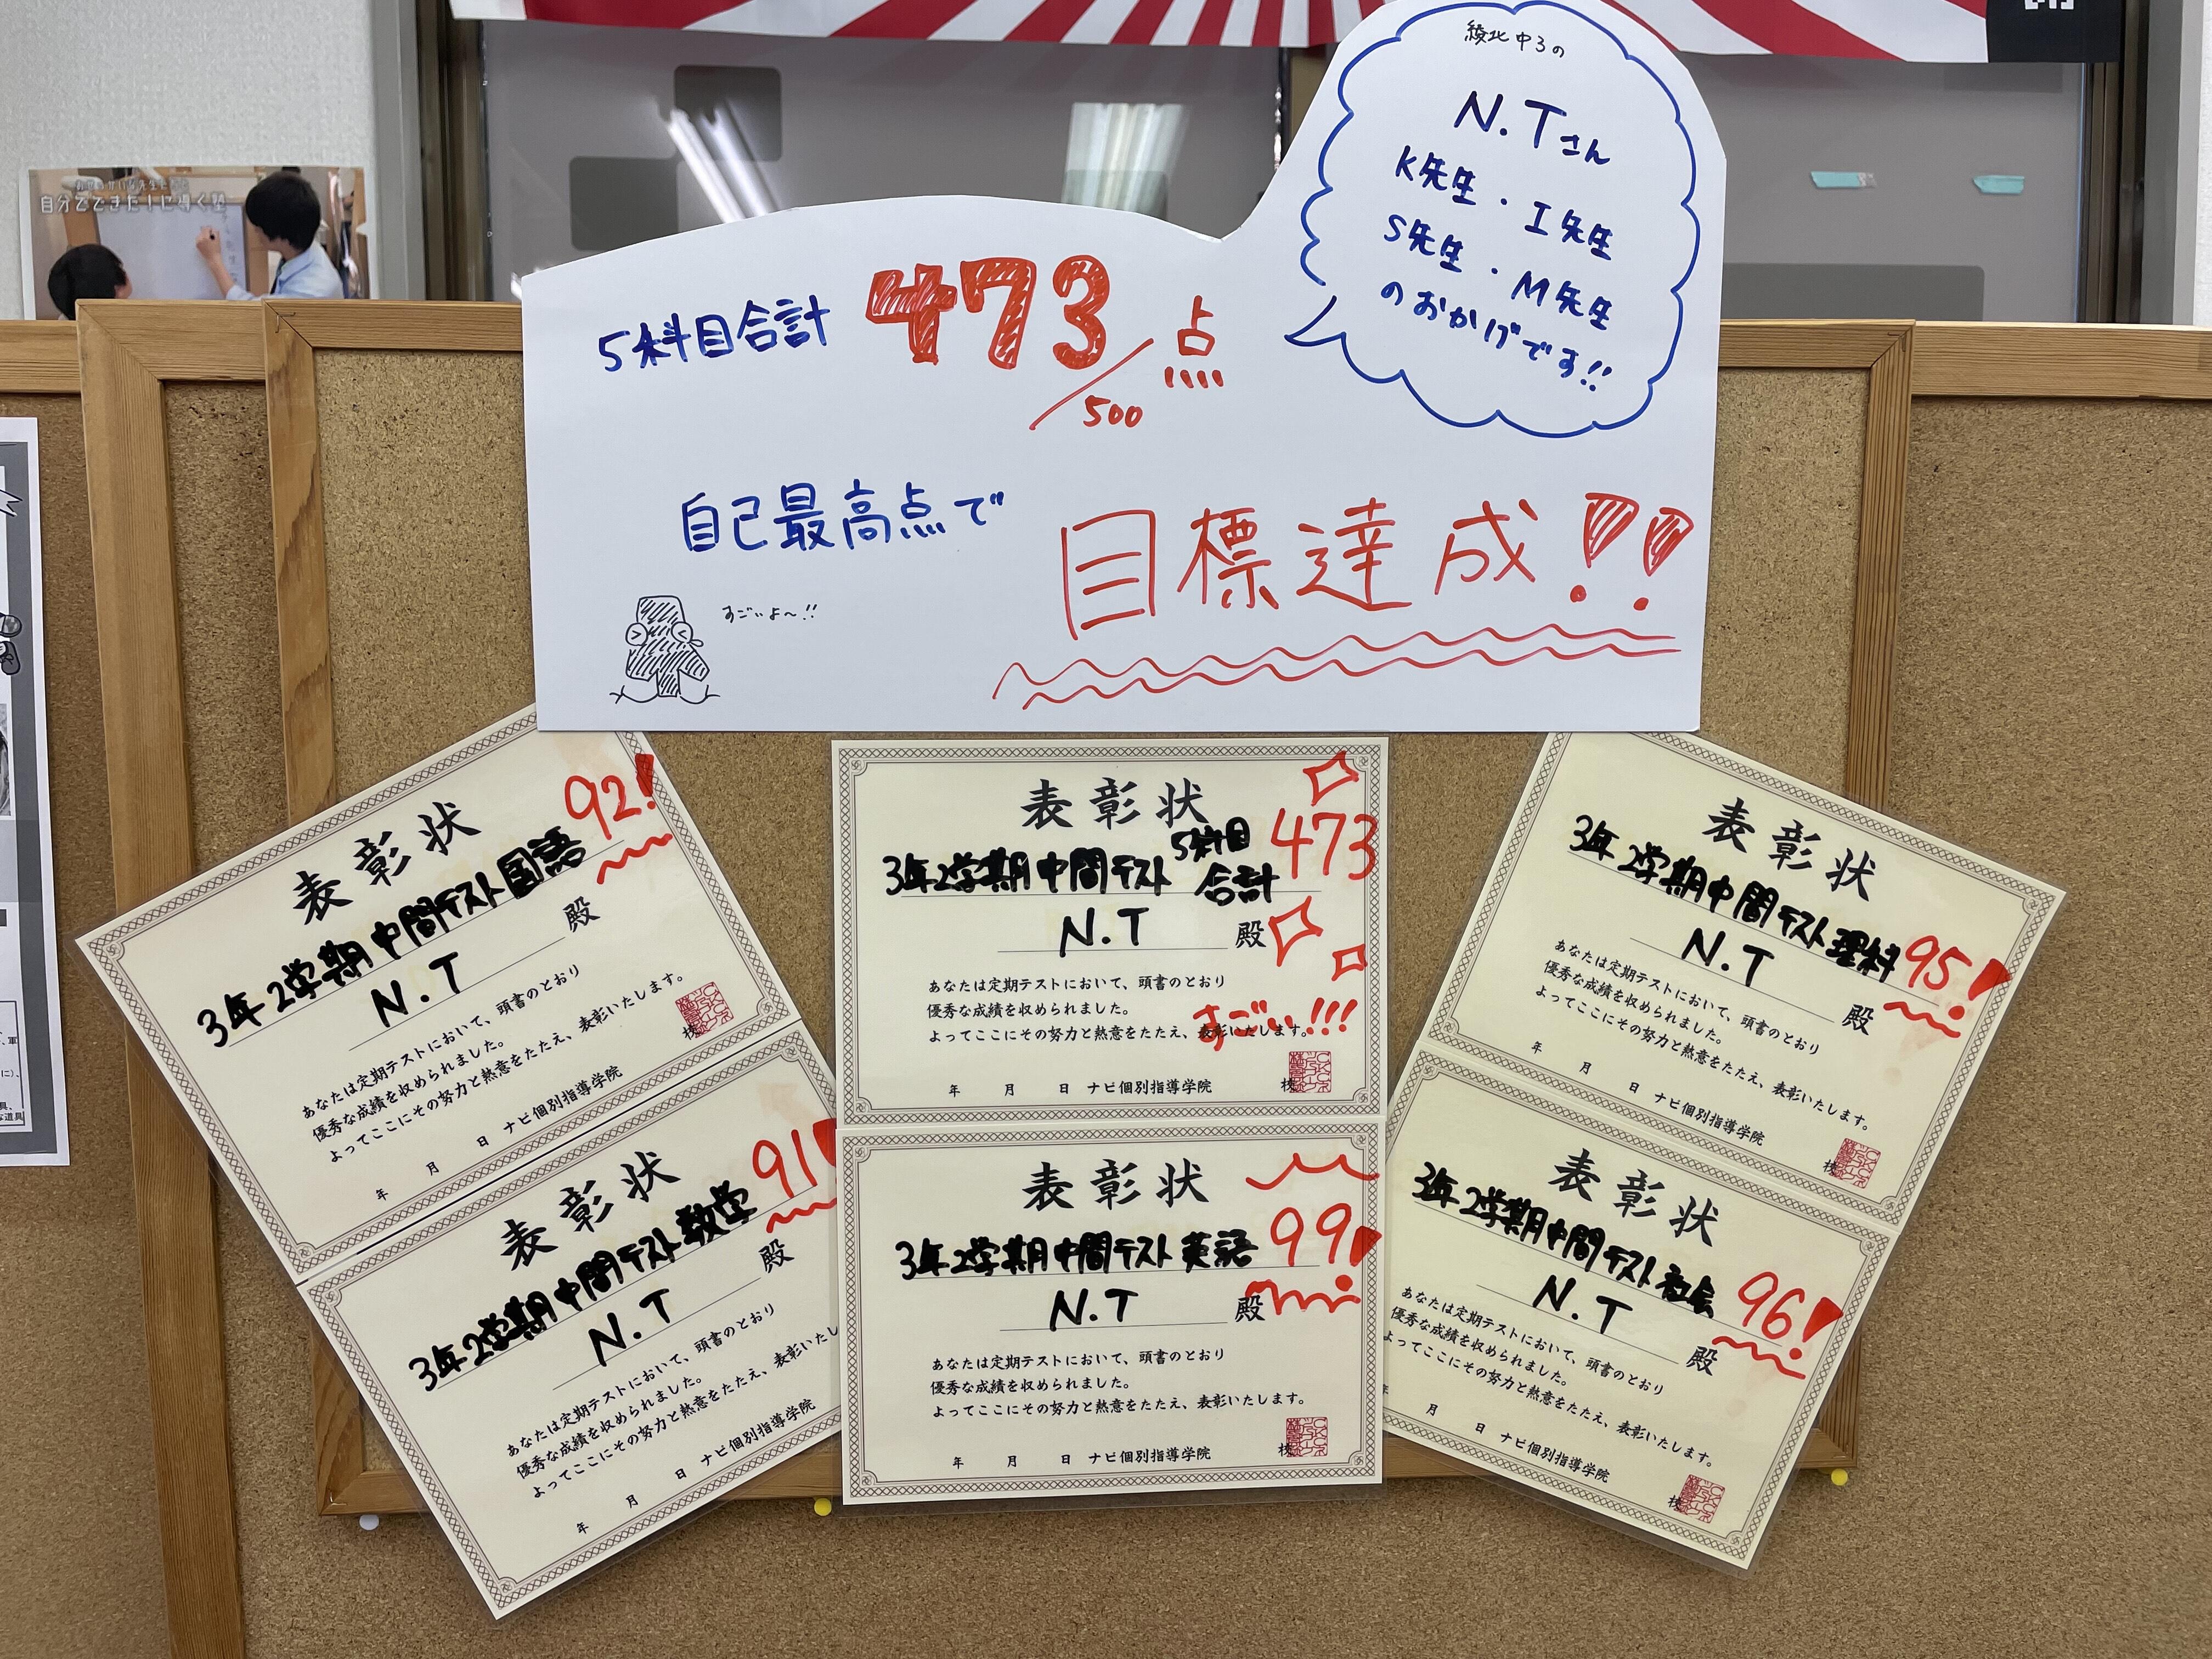 綾北中3の
N.Tさん
K先生・I先生
S先生・M先生
のおかげです!!
5科目合計 473点
/500
自己最高点で
目標達成!!
すごいよ〜!!
自分でできた!に導く塾
表彰状
3年2学期中間テスト国語 92!
N.T 殿
あなたは定期テストにおいて、頭書のとおり
優秀な成績を収められました。
よってここにその努力と熱意をたたえ、表彰いたします。
年 月 日 ナビ個別指導学院 校
表彰状
3年2学期中間テスト数学 91!
N.T 殿
あなたは定期テストにおいて、頭書のとおり
優秀な成績を収められました。
よってここにその努力と熱意をたたえ、表彰いたし
年 月 日 ナビ個別指導学院
表彰状
3年2学期中間テスト 5科目合計 473
N.T 殿
あなたは定期テストにおいて、頭書のとおり
優秀な成績を収められました。
よってここにその努力と熱意をたたえ、表彰いたします。
すごい!!!
年 月 日 ナビ個別指導学院 校
表彰状
3年2学期中間テスト英語 99!
N.T 殿
あなたは定期テストにおいて、頭書のとおり
優秀な成績を収められました。
よってここにその努力と熱意をたたえ、表彰いたします。
年 月 日 ナビ個別指導学院 校
表彰状
3年2学期中間テスト理科 95!
N.T 殿
あなたは定期テストにおいて、頭書のとおり
優秀な成績を収められました。
よってここにその努力と熱意をたたえ、表彰いたします。
年 月 日 ナビ個別指導学院 校
表彰状
3年2学期中間テスト社会 96!
N.T 殿
あなたは定期テストにおいて、頭書のとおり
優秀な成績を収められました。
よってここにその努力と熱意をたたえ、表彰いたします。
年 月 日 ナビ個別指導学院 校